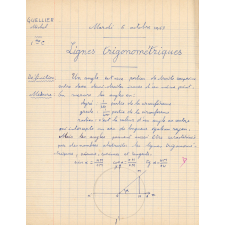 GUELLIER
Michel
Mardi 2 octobre
Lignes trigonométriques
Définition: Un angle est une portion de droite comprise
entre deux demi-droites issues d'un même point.
Mesure: On mesure les angles en:
degré: partie de la circonférence
grade: partie de la circonférence
radian: c'est la valeur d'un angle au centre
qui intercepte un arc de longueur égale au rayon.
Mais les angles peuvent aussi être
par des nombres abstraits: les lignes trigonomé-
triques, sinus, cosinus et tangente.
sin α = cos α = tg α =